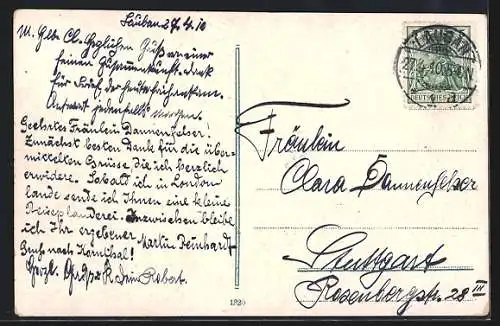 Lauban 27.4.10
M. liebe Cl. Herzlichen Gruß von einer
feinen Zusammenkunft. Dank
für Brief der heute hier ankam.
Antwort jedenfalls morgen.
Geehrtes Fräulein Dannenfelser!
Zunächst besten Dank für die über-
mittelten Grüsse, die ich herzlich
erwidere. Sobald ich in London
lande sende ich Ihnen eine kleine
Reiseplauderei. Inzwischen bleibe
ich Ihr ergebener Martin Deinhardt
Gruß nach Kornthal!
Herzl. Dein Robert.
LAUBAN
27.4.10
DEUTSCHES REICH
Fräulein
Clara Dannenfelser
Stuttgart
Rosenbergstr. 28 III
1320